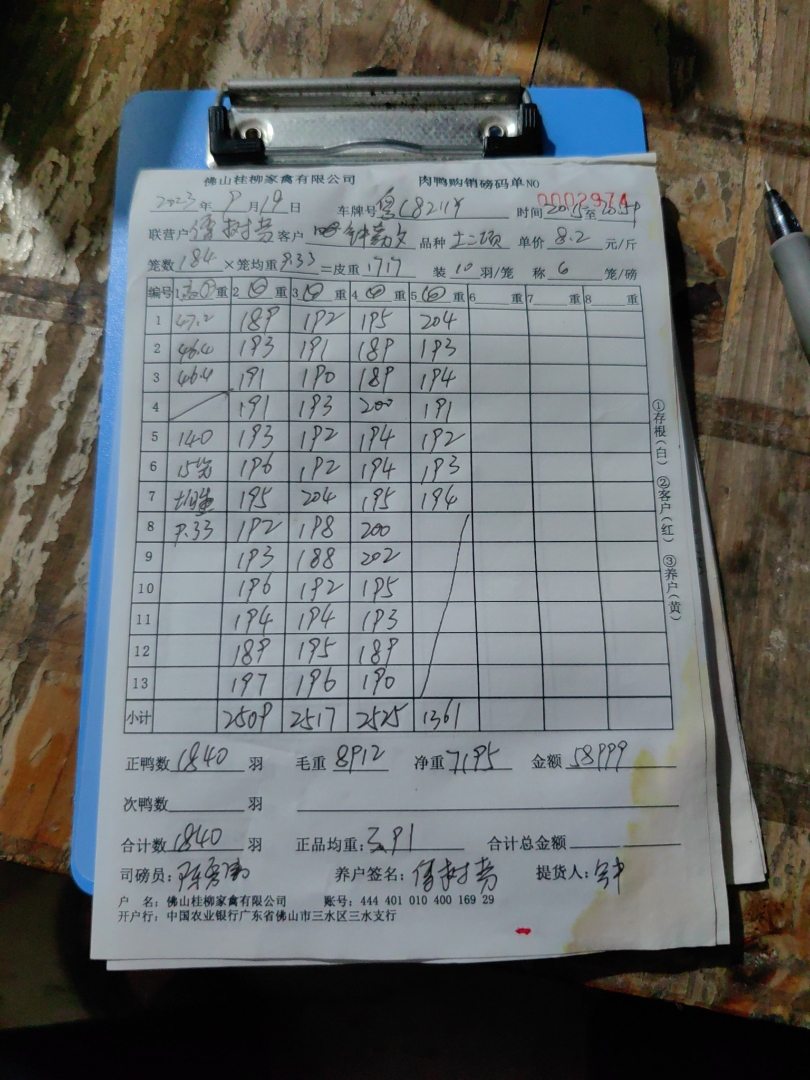 佛山桂柳家禽有限公司 肉鸭购销磅码单NO 0002974
2023年9月19日 车牌号粤 时间 至
联营户 客户 钟 文 品种 土二项 单价8.2元/斤
笼数184×笼均重9.33=皮重1717 装10羽/笼 称6笼/磅
编号 1 重 2 重 3 重 4 重 5 重 6 重 7 重 8 重
1 47.2 189 192 195 204
2 46.4 193 191 189 193
3 46.4 191 190 189 194
4 191 193 200 191
5 140 193 192 194 192
6 15 196 192 194 193
7 195 204 195 194
8 9.33 192 198 200
9 193 188 202
10 196 192 195
11 194 194 193
12 189 195 189
13 197 196 190
小计 2509 2517 2525 1361
正鸭数1840羽 毛重8912 净重7195 金额58999
次鸭数 羽
合计数1840羽 正品均重:3.91 合计总金额
司磅员: 养户签名: 提货人:钟
户 名:佛山桂柳家禽有限公司 账号:444 401 010 400 169 29
开户行:中国农业银行广东省佛山市三水区三水支行
①存根(白) ②客户(红) ③养户(黄)